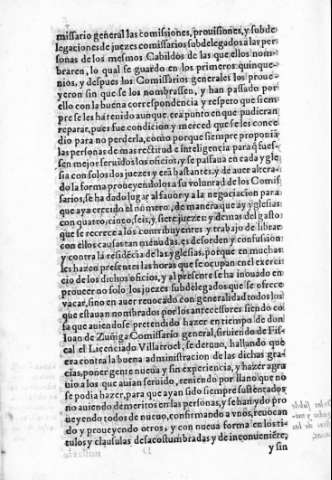 missario general las comissiones, prouisiones, y subde
legaciones de juezes comissarios subdelegados a las per
sonas de los mesmos Cabildos de las que ellos nom-
braren, lo qual se guardo en los primeros quinque-
nios, y despues los Comissarios generales los proue-
yeron sin que se los nombrassen, y han passado por
ello con la buena correspondencia y respeto que siem
pre se les ha tenido aunque era punto en que pudieran
reparar, pues fue condicion y merced que se les conce
dio para no perderla, como porque siempre proponiã
las personas de mas rectitud e inteligencia para q̃ fues-
sen mejor seruidos los oficios, y se passaua en cada ygle
sia con solos dos juezes y era bastante, y de auer altera-
do la forma proueyendolos a su voluntad de los Comis
sarios, se ha dado lugar al fauor y a la negociacion para
que aya crecido el numero, de manera que ay yglesias
con quatro, cinco, seis, y siete juezes: y demas del gasto
que se recrece a los contribuyentes y trabajo de librar
con ellos causas tan menudas, es desorden y confusion
y contra la residēcia de las yglesias, porque en muchas
les hazen presentes las horas que se ocupan en el exerci
cio de los dichos oficios, y al presente se ha inouado en
proueer no solo los juezes subdelegados que se ofrece
vacar, sino en auer reuocado con generalidad todos los
que estauan nombrados por los antecessores siendo co
sa que auiendose pretendido hazer en tiempo de don
Iuan de Zuñiga Comissario general, siruiendo de Fis-
cal el Licenciado Villarroel, se detuuo, hallando que
era contra la buena administracion de las dichas gra-
cias, poner gente nueua y sin experiencia, y hazer agra
uio a los que auian seruido, teniendo por llano que no
se podia hazer, para que ayan sido siempre sustentados
no auiendo demeritos en las personas, y se han ydo pro
ueyendo todos de nueuo, confirmando a vnos, reuocan
do y proueyendo otros, y con nueua forma en los ti-
tulos y clausulas desacostumbradas y de inconueniēte,
y sin